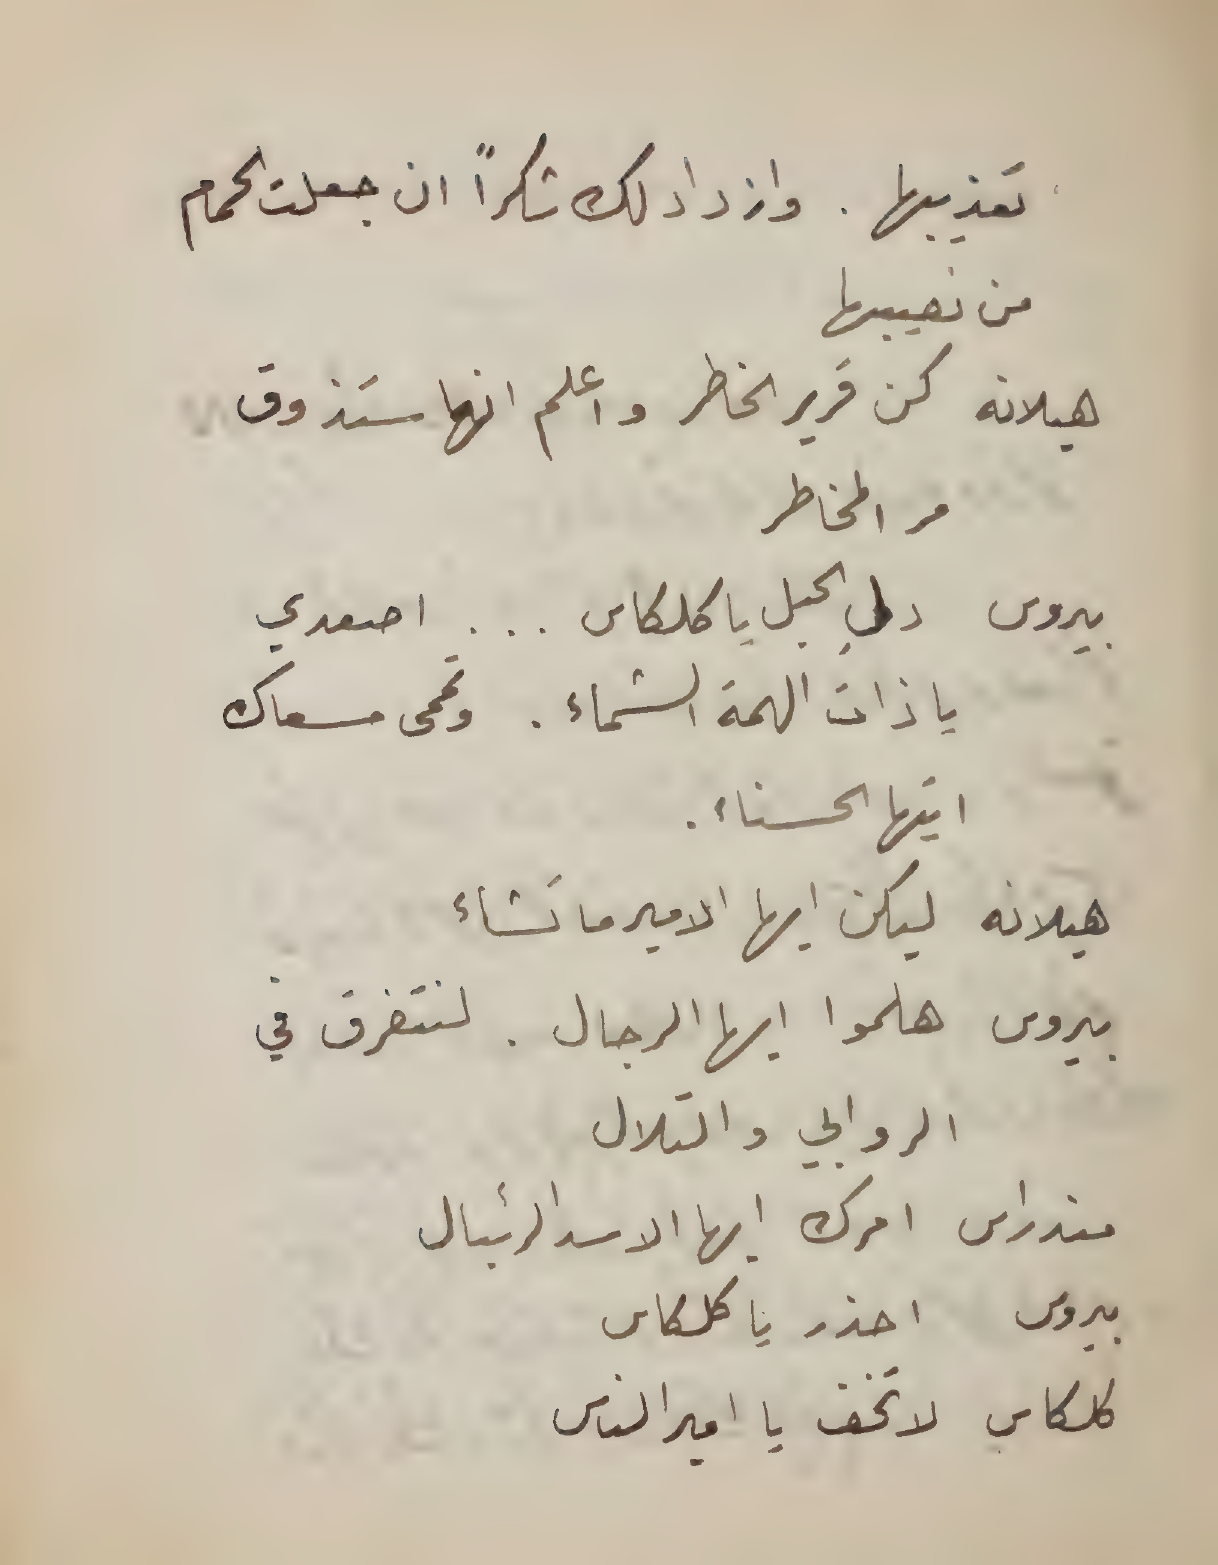 تعذيبها . وازداد لك شكراً ان جعلت الحمام
من نصيبها
هيلانه كن قرير الخاطر واعلم انها ستذوق
مر المخاطر
بيروس دلي الحبل يا كلكاس . . . اصعدي
يا ذات الهمة الشماء . وتحمى مسعاك
ايتها الحسناء .
هيلانه ليكن ايها الامير ما تشاء
بيروس هلموا ايها الرجال . لنتفرق في
الروابي والتلال
مندراس امرك ايها الاسد الرئبال
بيروس احذر يا كلكاس
كلكاس لا تخف يا امير الناس